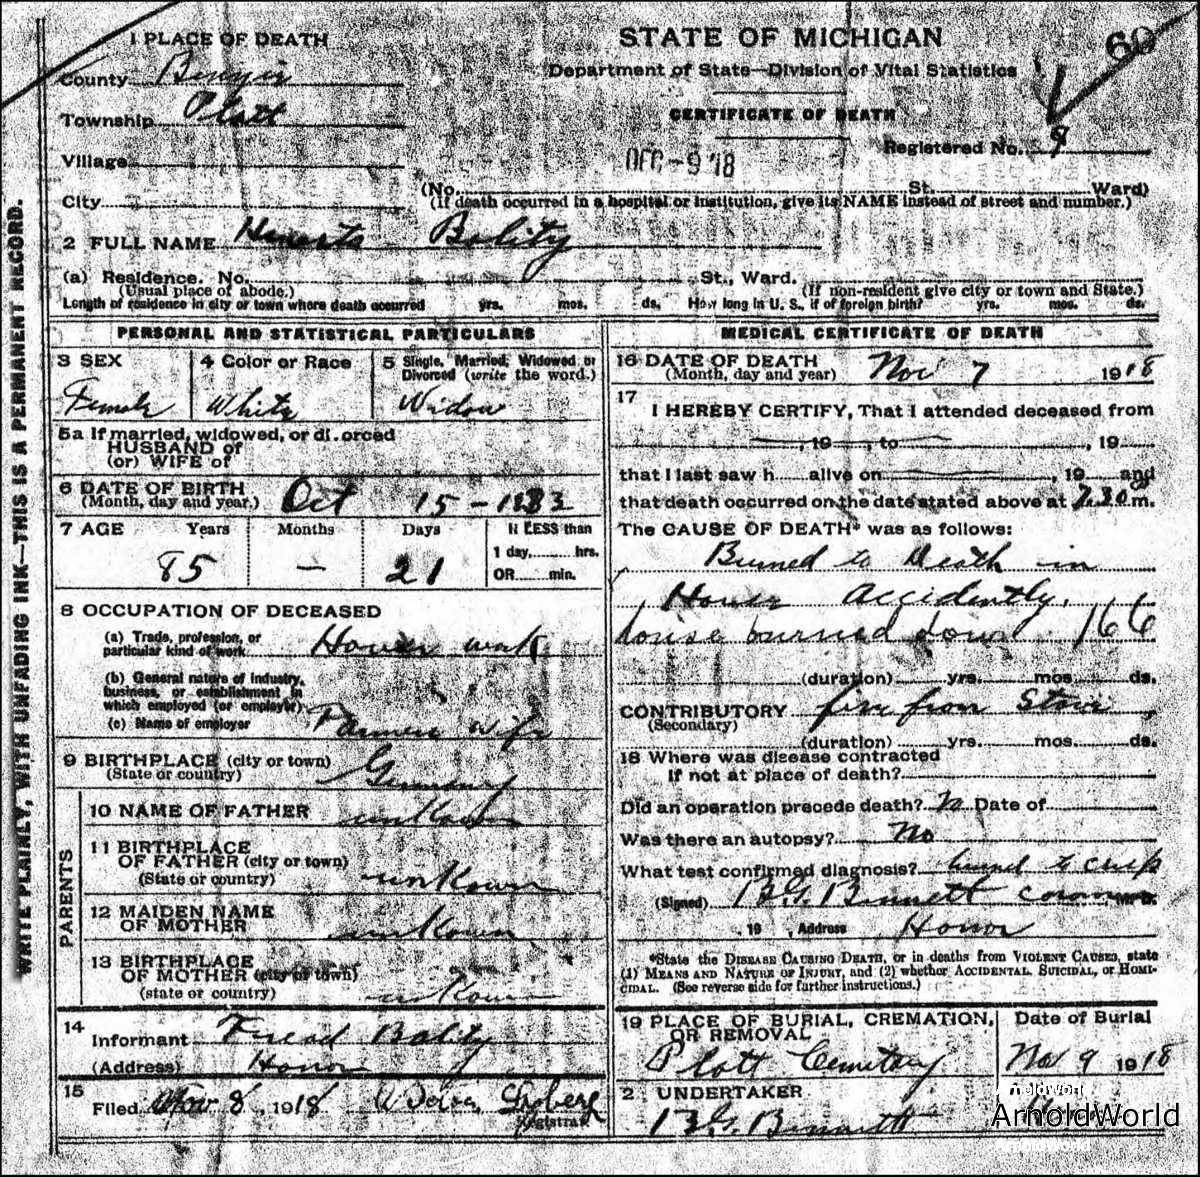 1 PLACE OF DEATH
STATE OF MICHIGAN
60
County Benzie
Department of State—Division of Vital Statistics
Township Platt
CERTIFICATE OF DEATH
Registered No. 9
Village
DEC -9 '18
City
(No. St. Ward)
(If death occurred in a hospital or institution, give its NAME instead of street and number.)
2 FULL NAME Bality
(a) Residence. No. St., Ward.
(Usual place of abode.) (If non-resident give city or town and State.)
Length of residence in city or town where death occurred yrs. mos. ds. How long in U. S., if of foreign birth? yrs. mos. ds.
PERSONAL AND STATISTICAL PARTICULARS
3 SEX
Female
4 Color or Race
White
5 Single, Married, Widowed or
Divorced (write the word.)
Widow
5a If married, widowed, or divorced
HUSBAND of
(or) WIFE of
6 DATE OF BIRTH Oct 15-
(Month, day and year.)
7 AGE Years Months Days If LESS than
1 day, hrs.
85 — 21
OR min.
8 OCCUPATION OF DECEASED
(a) Trade, profession, or
particular kind of work House work
(b) General nature of industry,
business, or establishment in
which employed (or employer)
(c) Name of employer Farmers Wife
9 BIRTHPLACE (city or town)
(State or country) Germany
PARENTS
10 NAME OF FATHER unKown
11 BIRTHPLACE
OF FATHER (city or town)
(State or country) unKown
12 MAIDEN NAME
OF MOTHER unKown
13 BIRTHPLACE
OF MOTHER (city or town)
(state or country) unKown
14
Informant Fread Bality
(Address) Honor
15
Filed Nov 8, 1918
Registrar
MEDICAL CERTIFICATE OF DEATH
16 DATE OF DEATH
(Month, day and year) Nov 7 1918
17
I HEREBY CERTIFY, That I attended deceased from
, 19 , to , 19
that I last saw h alive on , 19 and
that death occurred on the date stated above at 7.30 m.
The CAUSE OF DEATH* was as follows:
Burned to Death in
House Accidently,
house burned down 166
(duration) yrs. mos. ds.
CONTRIBUTORY fire from Stove
(Secondary)
(duration) yrs. mos. ds.
18 Where was disease contracted
if not at place of death?
Did an operation precede death? No Date of
Was there an autopsy? No
What test confirmed diagnosis? burned to crisp
(Signed) B.G. Binnett coroner M. D.
, 19 , Address Honor
*State the DISEASE CAUSING DEATH, or in deaths from VIOLENT CAUSES, state
(1) MEANS AND NATURE OF INJURY, and (2) whether ACCIDENTAL, SUICIDAL, or HOMI-
CIDAL. (See reverse side for further instructions.)
19 PLACE OF BURIAL, CREMATION,
OR REMOVAL
Platt Cemetary
Date of Burial
Nov 9 1918
2 UNDERTAKER
B.G. Binnett
ArnoldWorld
WRITE PLAINLY, WITH UNFADING INK—THIS IS A PERMANENT RECORD.